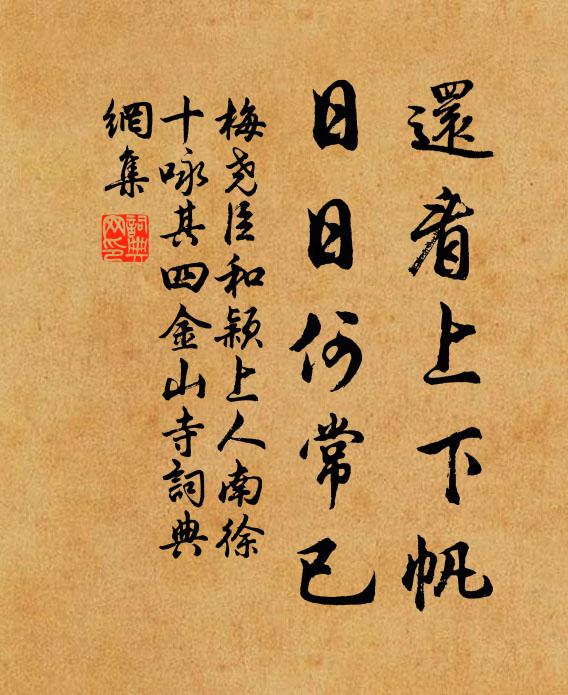 還看上下帆
日日何常已
梅堯臣和潁上人南徐
十咏其四金山寺詞典
網集
詞典
网印